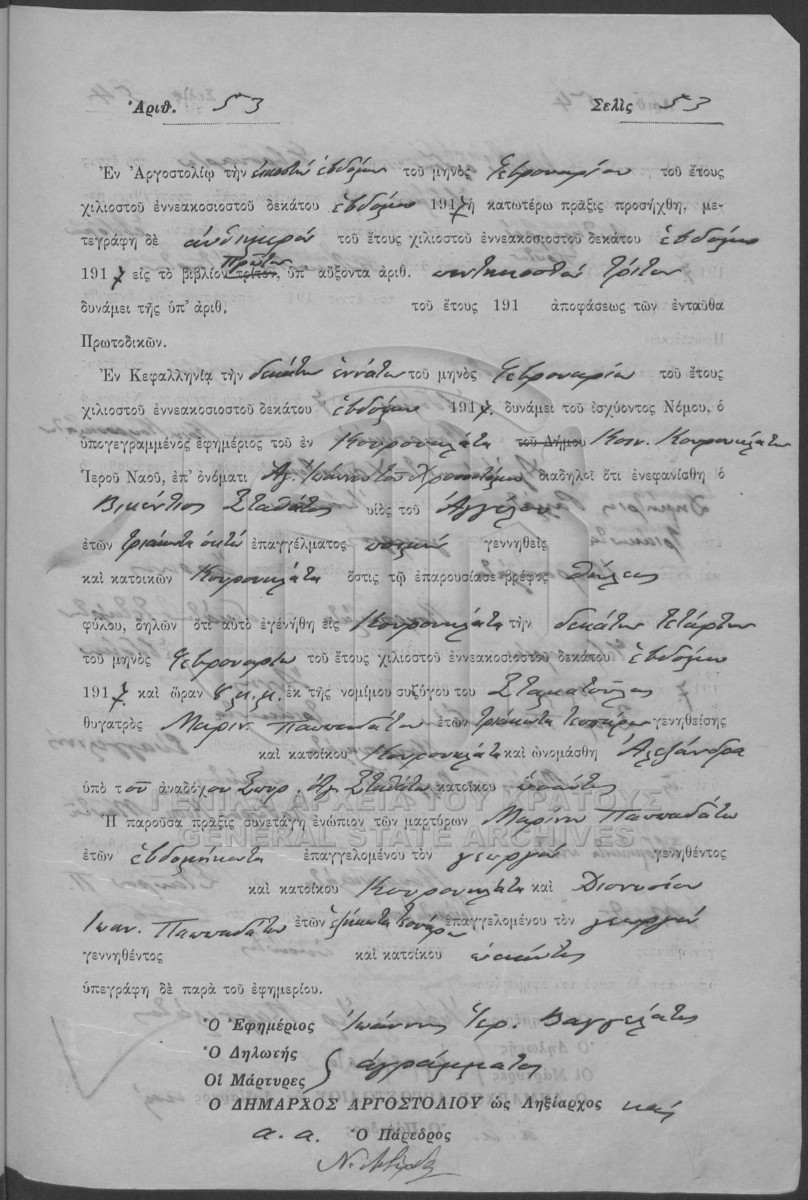 Ἀριθ. 53 Σελὶς 53
Ἐν Ἀργοστολίῳ τὴν εἰκοστὴν ἑβδόμην τοῦ μηνὸς Φεβρουαρίου τοῦ ἔτους
χιλιοστοῦ ἐννεακοσιοστοῦ δεκάτου ἑβδόμου 1917 ἡ κατωτέρω πρᾶξις προσήχθη, με-
τεγράφη δὲ αὐθημερὸν τοῦ ἔτους χιλιοστοῦ ἐννεακοσιοστοῦ δεκάτου ἑβδόμου
1917 εἰς τὸ βιβλίον τρίτον, πρῶτον ὑπ' αὔξοντα ἀριθ. πεντηκοστὸν τρίτον
δυνάμει τῆς ὑπ' ἀριθ. τοῦ ἔτους 191 ἀποφάσεως τῶν ἐνταῦθα
Πρωτοδικῶν.
Ἐν Κεφαλληνίᾳ τὴν δεκάτην ἐννάτην τοῦ μηνὸς Φεβρουαρίου τοῦ ἔτους
χιλιοστοῦ ἐννεακοσιοστοῦ δεκάτου ἑβδόμου 1917, δυνάμει τοῦ ἰσχύοντος Νόμου, ὁ
ὑπογεγραμμένος ἐφημέριος τοῦ ἐν Κουρουκλάτα τοῦ Δήμου Κοιν. Κουρουκλάτων
Ἱεροῦ Ναοῦ, ἐπ' ὀνόματι Ἁγ. Ἰωάννου τοῦ Χρυσοστόμου διαδηλοῖ ὅτι ἐνεφανίσθη ὁ
Βικέντιος Σταθάτος υἱὸς τοῦ Ἀγγέλου
ἐτῶν τριάκοντα ὀκτὼ ἐπαγγέλματος γεννηθεὶς
καὶ κατοικῶν Κουρουκλάτα ὅστις τῷ ἐπαρουσίασε βρέφος θήλεος
φύλου, δηλῶν ὅτι αὐτὸ ἐγενήθη εἰς Κουρουκλάτα τὴν δεκάτην τετάρτην
τοῦ μηνὸς Φεβρουαρίου τοῦ ἔτους χιλιοστοῦ ἐννεακοσιοστοῦ δεκάτου ἑβδόμου
1917 καὶ ὥραν μ.μ. ἐκ τῆς νομίμου συζύγου του Σταματούλας
θυγατρὸς Μαριν. Παππαδάτου ἐτῶν τριάκοντα τεσσάρων γενηθείσης
καὶ κατοίκου Κουρουκλάτα καὶ ὠνομάσθη Ἀλεξάνδρα
ὑπὸ τοῦ ἀναδόχου Σπυρ. Ἀγ. Σταθάτου κατοίκου ὡσαύτως
Ἡ παροῦσα πρᾶξις συνετάγη ἐνώπιον τῶν μαρτύρων Μαρίνου Παππαδάτου
ἐτῶν ἑβδομήκοντα ἐπαγγελομένου τὸν γεωργὸν γενηθέντος
καὶ κατοίκου Κουρουκλάτα καὶ Διονυσίου
Ἰωαν. Παππαδάτου ἐτῶν ἑξήκοντα τεσσάρων ἐπαγγελομένου τὸν γεωργὸν
γεννηθέντος καὶ κατοίκου ὡσαύτως
ὑπεγράφη δὲ παρὰ τοῦ ἐφημερίου.
Ὁ Ἐφημέριος Ἰωάννης Ἱερ. Βαγγελάτος
Ὁ Δηλωτής
Οἱ Μάρτυρες ἀγράμματοι
Ὁ ΔΗΜΑΡΧΟΣ ΑΡΓΟΣΤΟΛΙΟΥ ὡς Ληξίαρχος
α. α. Ὁ Πάρεδρος
ΓΕΝΙΚΑ ΑΡΧΕΙΑ ΤΟΥ ΚΡΑΤΟΥΣ
GENERAL STATE ARCHIVES